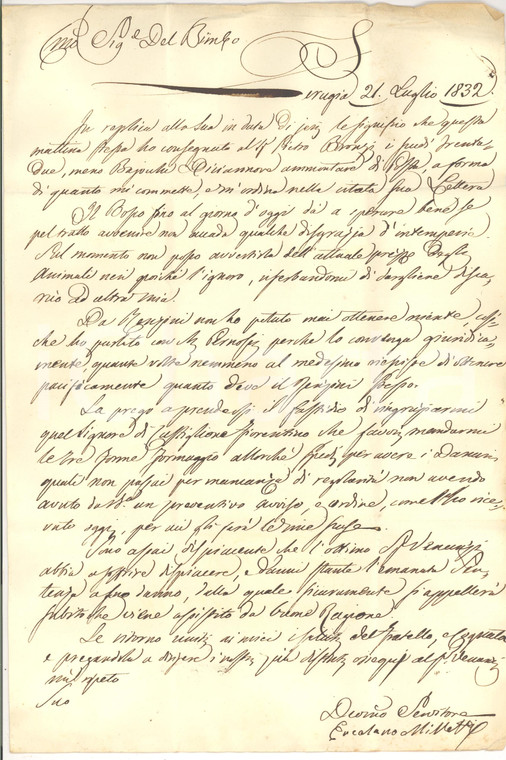 Sig.e Del Bimbo
Perugia 21. Luglio 1832.
In replica alla Sua in data di jeri le significo che questa
mattina stessa ho consegnato al Sr. Pietro i scudi trenta-
due, meno Bajocchi Diciannove ammontare di a forma
di quanto mi commette, e m'ordina nella citata sua Lettera
Il Bosco fino al giorno d'oggi dà a sperare bene se
pel tratto avvenire non accada qualche disgrazia d'intemperie.
Sul momento non posso avvertirla dell'attuale prezzo degli
Animali neri poiché l'ignoro, riserbandomi di dargliene
ad altra mia.
Da non ho potuto mai ottenere niente,
che ho parlato con perche lo convenga giudizia-
mente, quante volte nemmeno al medesimo riesca di ottenere
pacificamente quanto deve il stesso.
La prego a prendersi il fastidio di ringraziarmi
quel Signore di Castiglione Fiorentino che favorì mandarmi
le tre forme formaggio allorché per avere i Danari
quali non passai per mancanza di regolarità non avendo
avuto da un preventivo avviso, e ordine, come l'ho rice-
vuto oggi, per cui gli farà le mie scuse.
Sono assai dispiacente che l'ottimo Sr.
abbia a soffrire dispiacere, e danni stante l'emanata Sen-
tenza a suo danno, dalla quale sicuramente si appellerà
subitoché viene assistito da buone Ragioni
Le ritorno uniti ai miei i saluti del fratello, e Cognata
e pregandola a i più distinti ossequi al Sr.
mi ripeto
Suo
Devmo Servitore
Ercolano